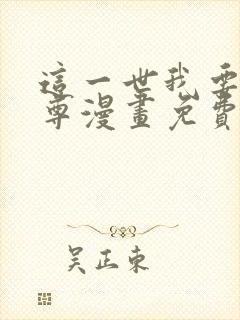 這一世我要
尊漫畫免費
吴正東